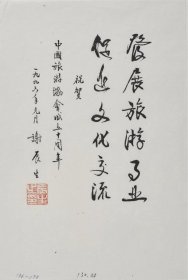 發展旅游事业
促进文化交流
祝贺
中國旅游协会成立十周年
一九九六年元月 謝辰生